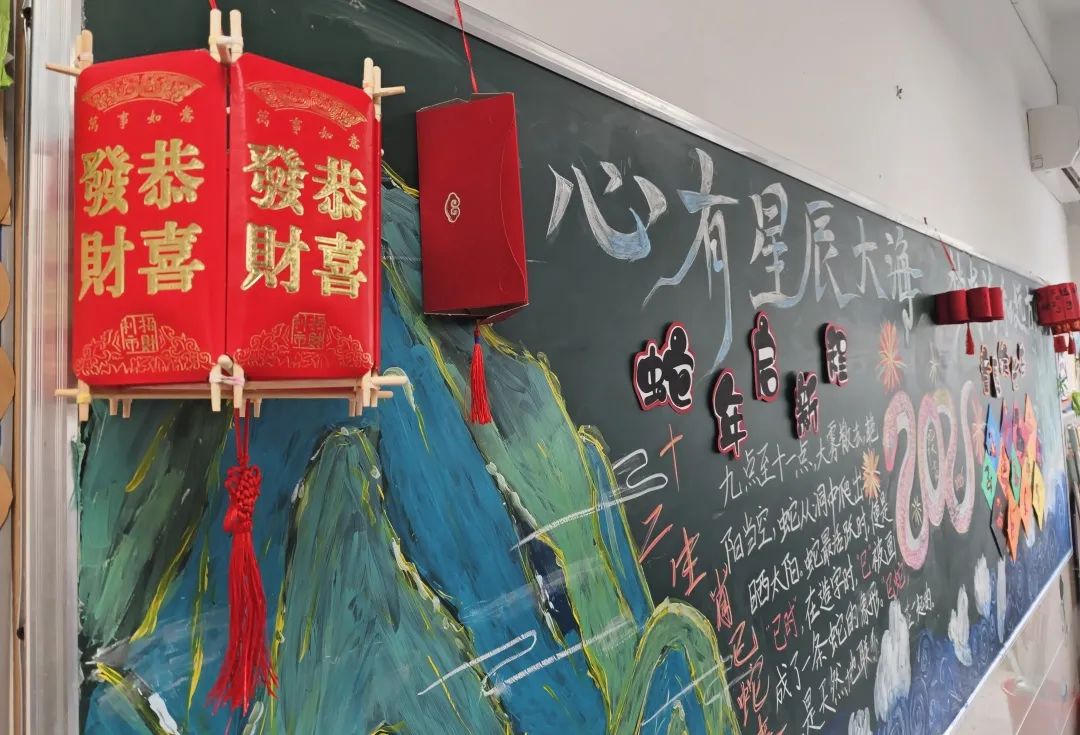 萬事如意
恭喜
發財
招財
利市
萬事如意
恭喜
發財
招財
利市
心有星辰大海
蛇年启新程
十二生肖巳蛇
九点至十一点,大雾散去,艳
阳当空,蛇从洞中爬出
晒太阳,蛇最活跃时,便是
巳时,在造字时,巳被画
成了一条蛇的象形,巳蛇
是天然地联
2025